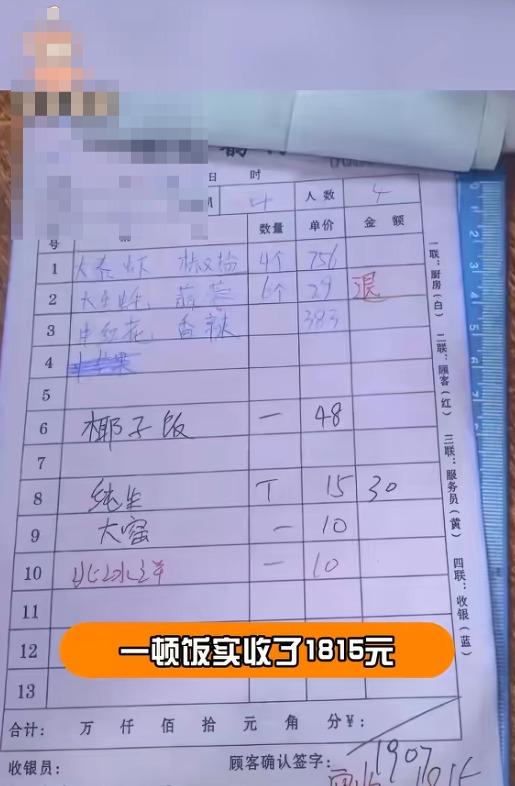 日 时
人数 4
号 数量 单价 金额
1 4个 756
2 6个 29 退
3 中红花 香辣 383
4
5
6 椰子饭 一 48
7
8 纯生 T 15 30
9 大窑 一 10
10 一 10
11
12
13
一顿饭实收了1815元
合计： 万 仟 佰 拾 元 角 分￥：
收银员： 顾客确认签字：
1907
1815
一联：厨房（白） 二联：顾客（红） 三联：服务员（黄） 四联：收银（蓝）